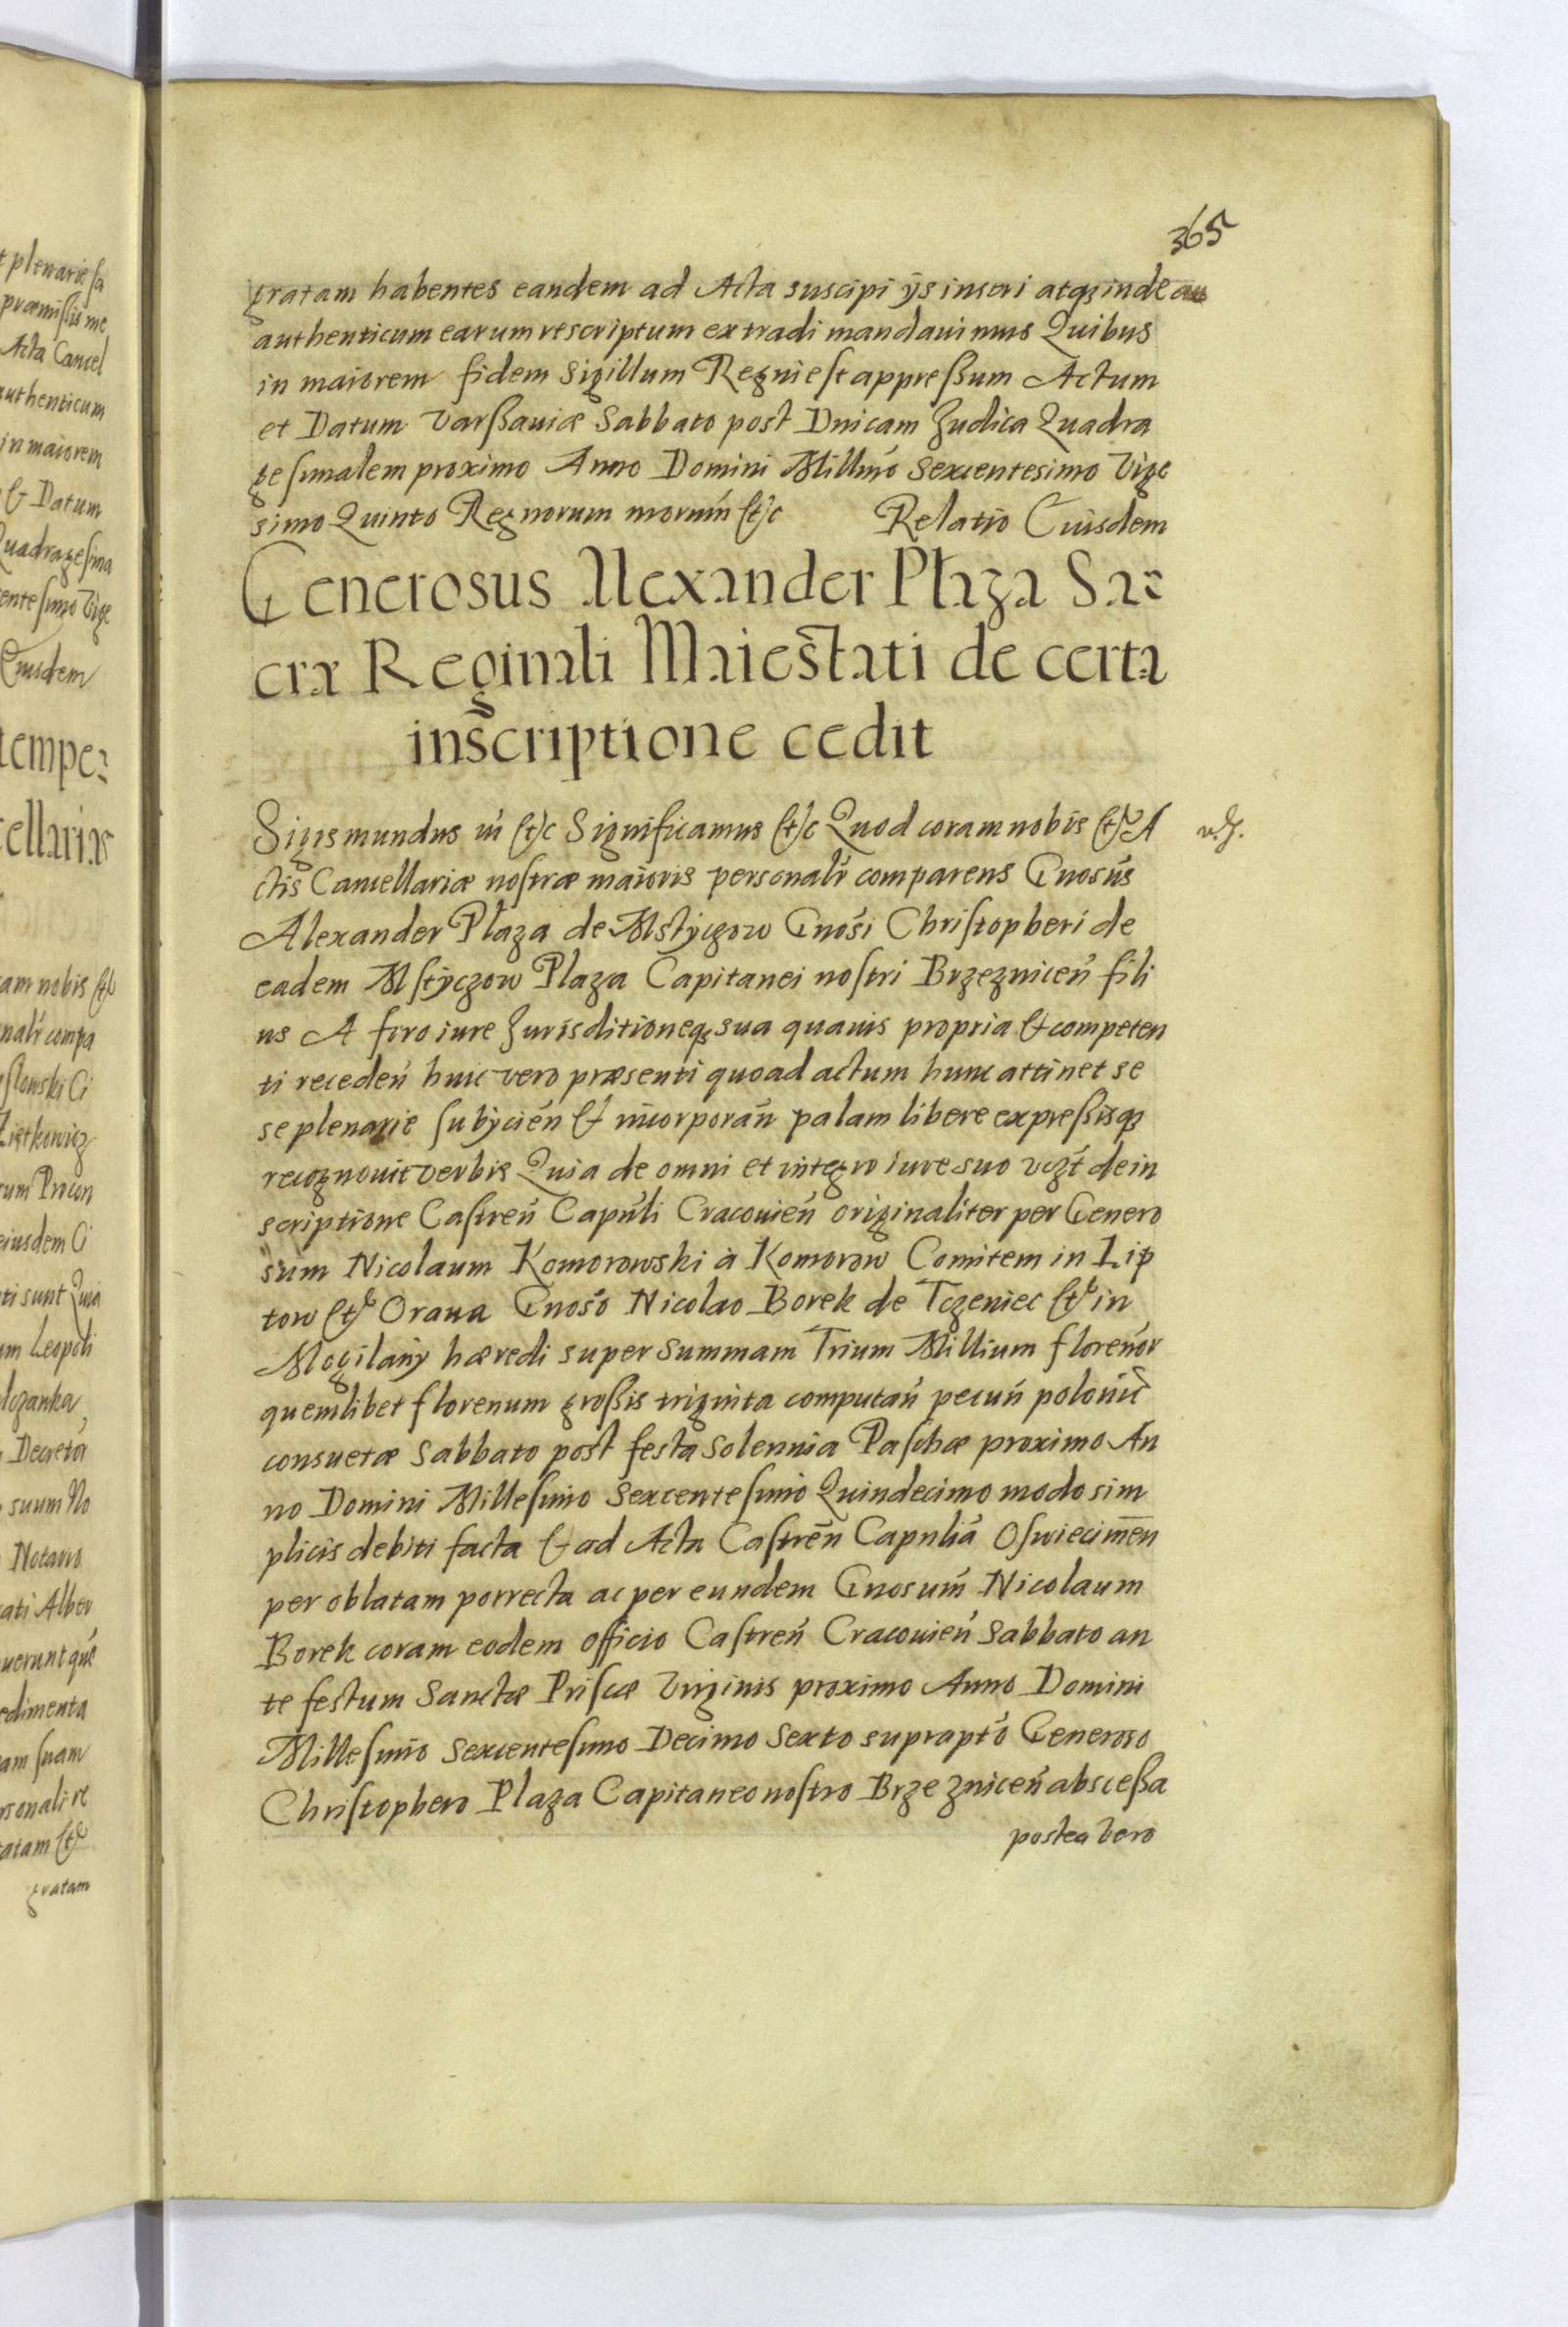 365
gratam habentes eandem ad Acta suscipi ijs inseri atq3 inde au
authenticum earum rescriptum extradi mandauimus Quibus
in maiorem fidem Sigillum Regni est appressum Actum
et Datum Varssauiæ Sabbato post Dnicam Judica Quadra
gesimalem proximo Anno Domini Millmo Sexcentesimo Vige
simo Quinto Regnorum nrorum etc Relatio Eiusdem
Generosus Alexander Płaza Sa
cræ Reginali Maiestati de certa
inscriptione cedit
Sigismundus iii etc Significamus etc Quod coram nobis et A
ctis Cancellariæ nostræ maioris personalr comparens Gnosus
Alexander Płaza de Mstyczow Gnosi Christopheri de
eadem Mstyczow Płaza Capitanei nostri Brzeznicen fili
us A foro iure Jurisditioneq3 sua quauis propria & competen
ti receden huic vero præsenti quoad actum hunc attinet se
se plenarie subijcien & incorporan palam libere expressisq3
recognouit verbis Quia de omni et integro iure suo vczt de in
scriptione Castren Capnli Cracouien originaliter per Genero
sum Nicolaum Komorowski à Komorow Comitem in Lip
tow et Oraua Gnoso Nicolao Borek de Tczeniec et in
Mogilany hæredi super summam Trium Millium florenor
quemlibet florenum grossis triginta computan pecun polonic
consuetæ Sabbato post festa solennia Paschæ proximo An
no Domini Millesimo Sexcentesimo Quindecimo modo sim
plicis debiti facta & ad Acta Castren Capnlia Oswiecimen
per oblatam porrecta ac per eundem Gnosum Nicolaum
Borek coram eodem officio Castren Cracouien Sabbato an
te festum Sanctæ Priscæ Virginis proximo Anno Domini
Millesimo Sexcentesimo Decimo Sexto suprapto Generoso
Christophero Płaza Capitaneo nostro Brzeznicen abscessa
postea vero